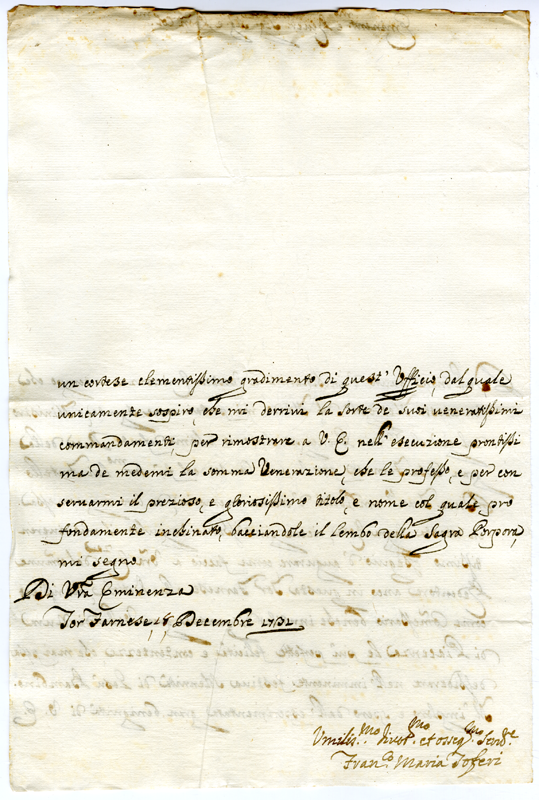 un cortese clementissimo gradimento di quest' Ufficio, dal quale
unicamente sospiro, che mi derrivi la sorte de suoi veneratissimi
commandamenti, per rimostrare a V. E. nell' esecuzione prontissi
ma de medemi la somma Venerazione, che le professo, e per con
servarmi il prezioso, e gloriosissimo titolo, e nome col quale pro
fondamente inchinato, bacciandole il lembo della Sagra Porpora,
mi segno
Di Vra Eminenza
Tor Farnese, Decembre 1731
Umilis.mo et osseq.mo
Fran.o Maria Soferi